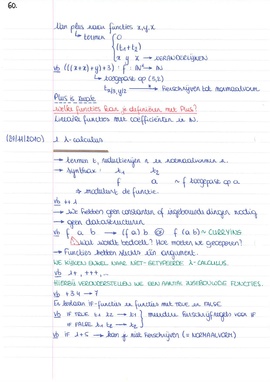 60.
Van plus naar functies x,y,z
↳ termen { 0
(t₁+t₂)
x y z → VERANDERLIJKEN
vb (((x+x)+y)+3) : f : ℕ² → ℕ
↳ toegepast op (5,2)
→ Herschrijven tot normaalvorm
Plus is
Welke functies kan je definiëren met Plus?
Lineaire functies met coëfficiënten in ℕ.
1 λ-calculus
→ termen t, reductieregels en normaalvormen
→ synthax: t₁ t₂
f a ~ f toegepast op a
→ We hebben geen constanten of ingebouwde dingen nodig
→ geen datastructuren
vb f a b → (f a) b of f (a b) → CURRYING
Wat wordt bedoeld? Hoe moeten we groeperen?
→ Functies hebben slechts één argument.
WE KIJKEN ENKEL NAAR NIET-GETYPEERDE λ-CALCULUS.
HIERBIJ VERONDERSTELLEN WE EEN AANTAL INGEBOUWDE FUNCTIES.
vb + 3 4 → 7
Er bestaan IF-functies in functies met TRUE en FALSE
vb IF TRUE t₁ t₂ → t₁ } meerdere herschrijfregels voor IF
IF FALSE t₁ t₂ → t₂
vb IF 1+5 → kan je niet herschrijven (= NORMAALVORM)